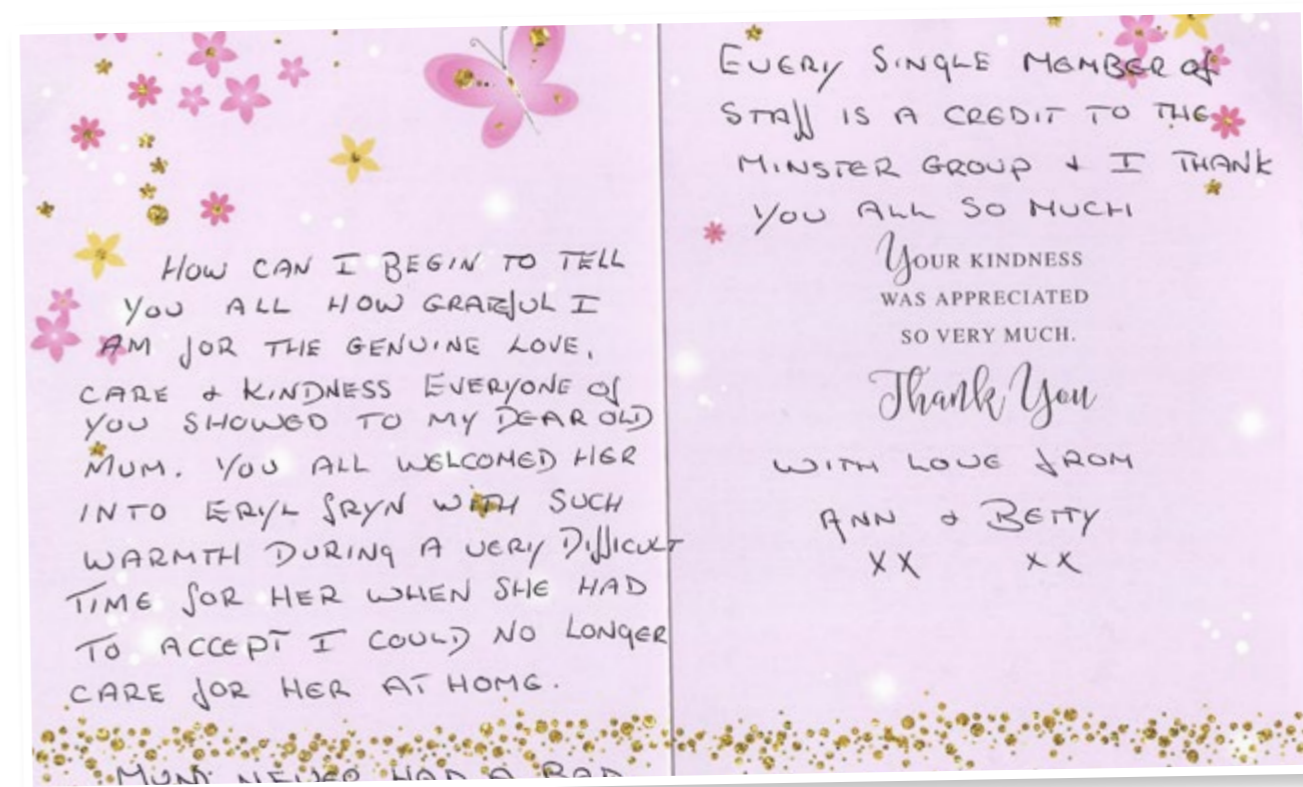 HOW CAN I BEGIN TO TELL
YOU ALL HOW GRATEFUL I
AM FOR THE GENUINE LOVE,
CARE & KINDNESS EVERYONE OF
YOU SHOWED TO MY DEAR OLD
MUM. YOU ALL WELCOMED HER
INTO ERYL FRYN WITH SUCH
WARMTH DURING A VERY DIFFICULT
TIME FOR HER WHEN SHE HAD
TO ACCEPT I COULD NO LONGER
CARE FOR HER AT HOME.
MUM NEVER HAD A BAD
EVERY SINGLE MEMBER OF
STAFF IS A CREDIT TO THE
MINSTER GROUP & I THANK
YOU ALL SO MUCH
YOUR KINDNESS
WAS APPRECIATED
SO VERY MUCH.
Thank You
WITH LOVE FROM
ANN & BETTY
XX XX